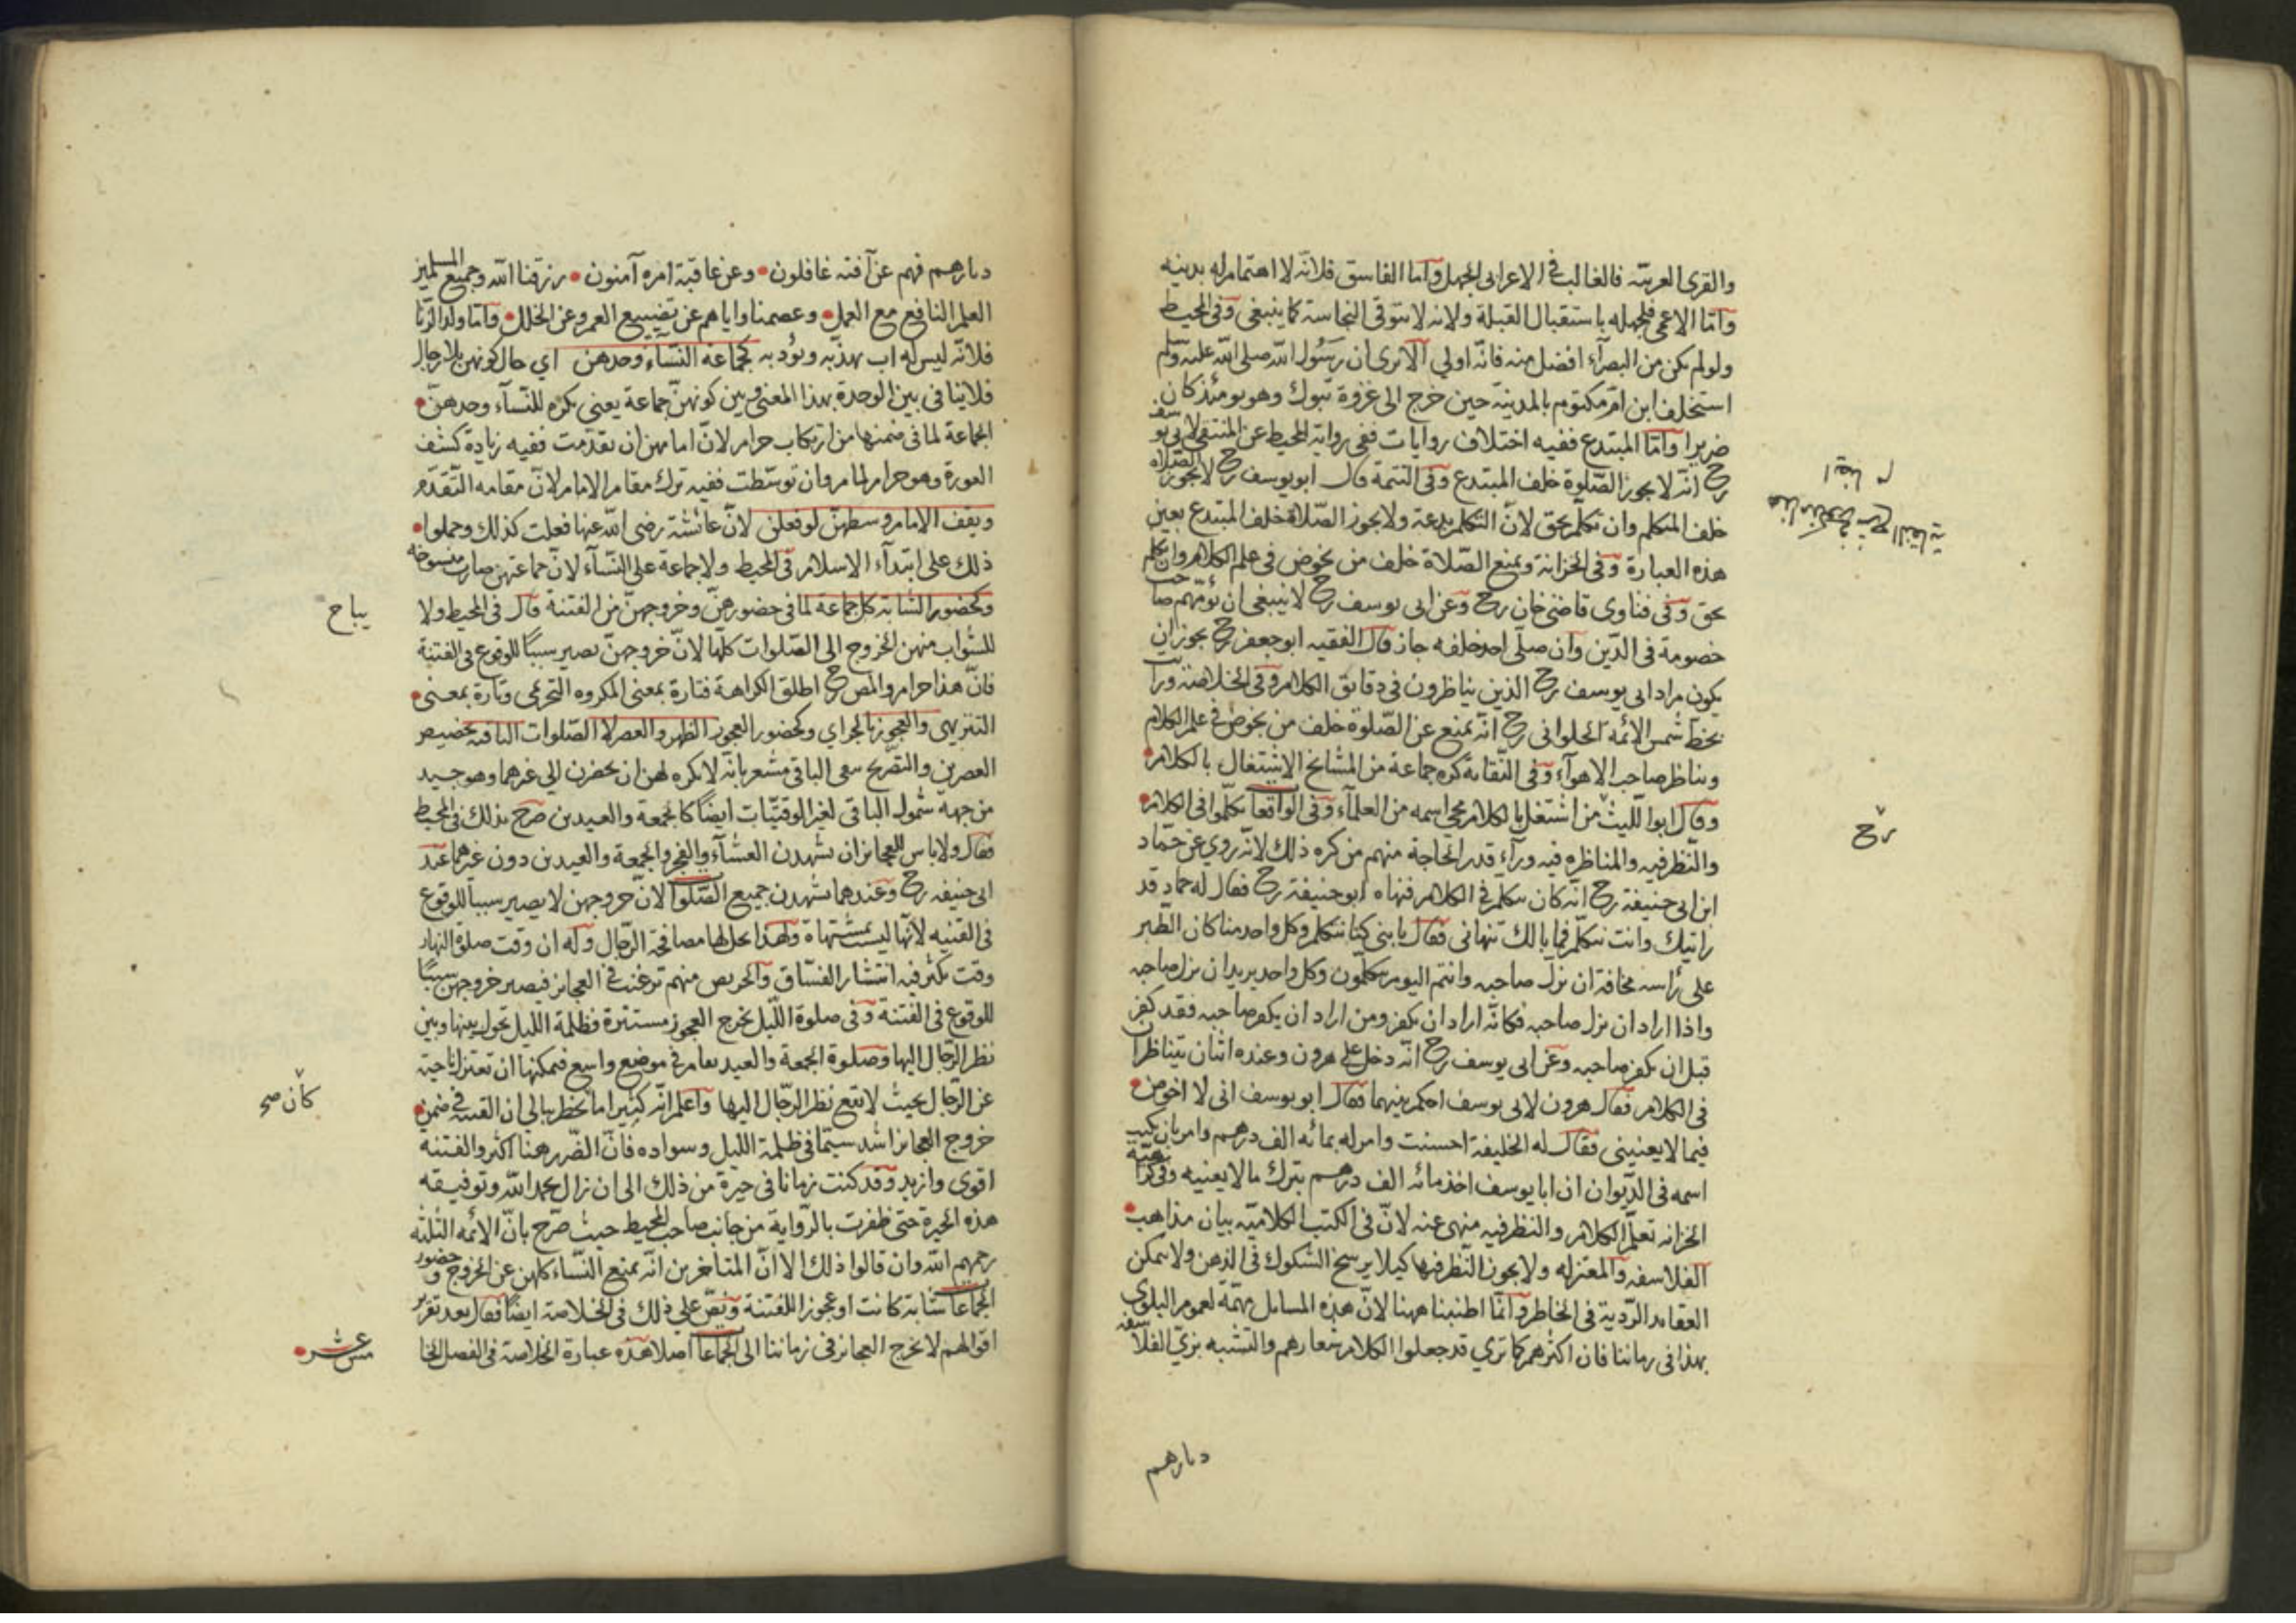 والقرى العربيّة فالغالب في الاعرابي الجهل وامّا الفاسق فلانّه لا اهتمام له بدينه
وامّا الاعمى فلجهله باستقبال القبلة ولانه لا يتوقى النجاسة كما ينبغي وفي المحيط
ولو لم يكن من البصرآء افضل منه فانّه اولي الا ترى ان رسول الله صلى الله عليه وسلم
استخلف ابن امّ مكتوم بالمدينة حين خرج الى غزوة تبوك وهو يومئذ كان
ضريرا وامّا المبتدع ففيه اختلاف روايات ففي رواية المحيط عن المنتقى لابي يوسف
رح انّه لا يجوز الصّلوة خلف المبتدع وفي التتمة قال ابو يوسف رح لا يجوز الصّلاة
خلف المتكلم وان تكلّم بحق لانّ التكلم بدعة ولا يجوز الصّلاة خلف المبتدع بعين
هذه العبارة وفي الخزانة ويمنع الصّلاة خلف من يخوض في علم الكلام وان تكلم
بحق وفي فتاوى قاضي خان رح وعن ابي يوسف رح لا ينبغي ان يؤمّهم صاحب
خصومة في الدّين وان صلّى احد خلفه جاز قال الفقيه ابو جعفر رح يجوز ان
يكون مراد ابي يوسف رح الذين يناظرون في دقايق الكلام وفي الخلاصة ورايت
بخط شمس الائمة الحلواني رح انّه يمنع عن الصّلوة خلف من يخوض في علم الكلام
ويناظر صاحب الاهوآء وفي النّقاية كره جماعة من المشايخ الاشتغال بالكلام
وقال ابوا اللّيث من اشتغل بالكلام محي اسمه من العلمآء وفي الواقعات تكلّموا في الكلام
والنّظر فيه والمناظره فيه ورآء قدر الحاجة منهم من كره ذلك لانّه روي عن حمّاد
ابن ابي حنيفة رح انّه كان يتكلم في الكلام فنهاه ابو حنيفة رح فقال له حماد قد
رايتك وانت تتكلّم فما بالك تنهاني فقال يا بني كنّا نتكلم وكل واحد منا كان الطير
على رأسه مخافة ان نزل صاحبه وانتم اليوم تتكلّمون وكل واحد يريد ان يزل صاحبه
واذا اراد ان يزل صاحبه فكانّه اراد ان يكفر ومن اراد ان يكفر صاحبه فقد كفر
قبل ان يكفر صاحبه وعن ابي يوسف رح انّه دخل على هرون وعنده اثنان يتناظران
في الكلام فقال هرون لابي يوسف احكم بينهما فقال ابو يوسف اني لا اخوض
فيما لا يعنيني فقال له الخليفة احسنت وامر له بمائة الف درهم وامر بان يكتب
اسمه في الدّيوان ان ابا يوسف اخذ مائه الف درهم بترك ما لا يعنيه وفي كراهية
الخزانه تعلّم الكلام والنظر فيه منهى عنه لانّ في الكتب الكلاميّه بيان مذاهب
الفلاسفه والمعتزله ولا يجوز النّظر فيها كيلا يرسخ الشكوك في الذهن ولا يتمكن
العقايد الرّدية في الخاطر وانّما اطنبنا ههنا لانّ هذه المسايل مهمّة لعموم البلوى
بهذا في زماننا فان اكثرهم كما ترى قد جعلوا الكلام شعارهم والتشبه بزيّ الفلاسفه
دثارهم
رح
دثارهم فهم عن آفته غافلون وعن عاقبة امره آمنون رزقنا الله وجميع المسلمين
العلم النافع مع العمل وعصمنا واياهم عن تضييع العمر وعن الخلل وامّا ولد الزنا
فلانّه ليس له اب يهذّبه ويؤدبه كجماعة النسّاء وحدهن اي حال كونهن بلا رجال
فلا ينافي بين الوحدة بهذا المعنى وبين كونهنّ جماعة يعني يكره للنّسآء وحدهنّ
الجماعة لما في ضمنها من ارتكاب حرام لانّ امامهن ان تقدّمت ففيه زيادة كشف
العورة وهو حرام لما مر وان توسّطت ففيه ترك مقام الامام لانّ مقامه التّقدّم
ويقف الامام وسطهنّ لو فعلن لانّ عائشة رضى الله عنها فعلت كذلك وحملوا
ذلك على ابتدآء الاسلام في المحيط ولا جماعة على النّسآء لانّ جماعتهن صارت منسوخه
وكحضور الشابّه كل جماعة لما في حضورهنّ وخروجهنّ من الفتنة قال في المحيط ولا
يباح
للشوابّ منهن الخروج الى الصّلوات كلّها لانّ خروجهنّ يصير سببًا للوقوع في الفتنة
فانّ هذا حرام والمص رح اطلق الكراهة فتارة بمعنى المكروه التحريمي وتارة بمعنى
التنزيهى والعجوز بالجر اي وكحضور العجوز الظهر والعصر لا الصّلوات الباقيه تخصيص
العصرين والتصّريح بنفى الباقى مشعر بانّه لا يكره لهن ان يحضرن الى غيرهما وهو جيد
من جهة شمول الباقى لغير الوقتيّات ايضًا كالجمعة والعيدين صرّح بذلك في المحيط
فقال ولا باس للعجائز ان يشهدن العشآء والفجر والجمعة والعيدين دون غيرهما عند
ابي حنيفه رح وعندهما يشهدن جميع الصّلوات لانّ خروجهن لا يصير سبباً للوقوع
في الفتنيه لانّها ليست بمشتهاة ولهذا يحل لها مصافحة الرّجال وله ان وقت صلوة النهار
وقت يكثر فيه انتشار الفسّاق والحريص منهم ترغب في العجائز فيصير خروجهن سببًا
للوقوع في الفتنة وفي صلوة اللّيل تخرج العجوز مستترة فظلمة الليل تحول بينها وبين
نظر الرّجال اليها وصلوة الجمعة والعيد يقام في موضع واسع فيمكنها ان تعتزل ناحية
عن الرّجال بحيث لا يقع نظر الرّجال اليها واعلم انّه كثيرا ما يخطر ببالي ان الفتنة في ضمن
كان صح
خروج العجائز اشد سيّما في ظلمة الليل وسواده فانّ الضّرر هنا اكثر والفتنة
اقوى وازيد وقد كنت زمانا في حيرة من ذلك الى ان زال بحمد الله وتوفيقه
هذه الحيرة حتى ظفرت بالرّواية من جانب صاحب المحيط حيث صرّح بانّ الائمه الثلثه
رحمهم الله وان قالوا ذلك الا انّ المتأخرين انّه يمنع النّساء كلهن عن الخروج وحضور
الجماعات شابة كانت او عجوزا للفتنة ونصّ على ذلك في الخلاصة ايضًا فقال بعد تقرير
اقوالهم لا يخرج العجائز في زماننا الى الجماعات اصلا هذه عبارة الخلاصة في الفصل الخا
مس عشر